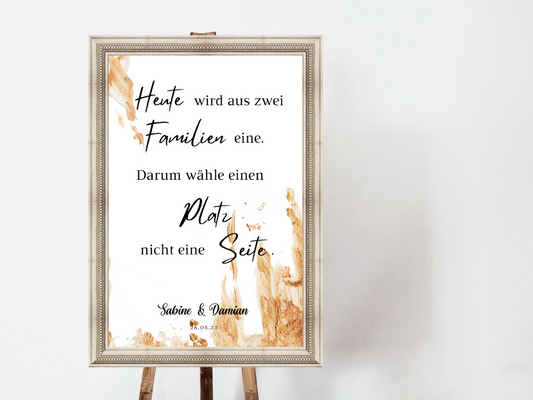 Heute wird aus zwei
Familien eine.
Darum wähle einen
Platz
nicht eine Seite.
Sabine & Damian
26.08.23